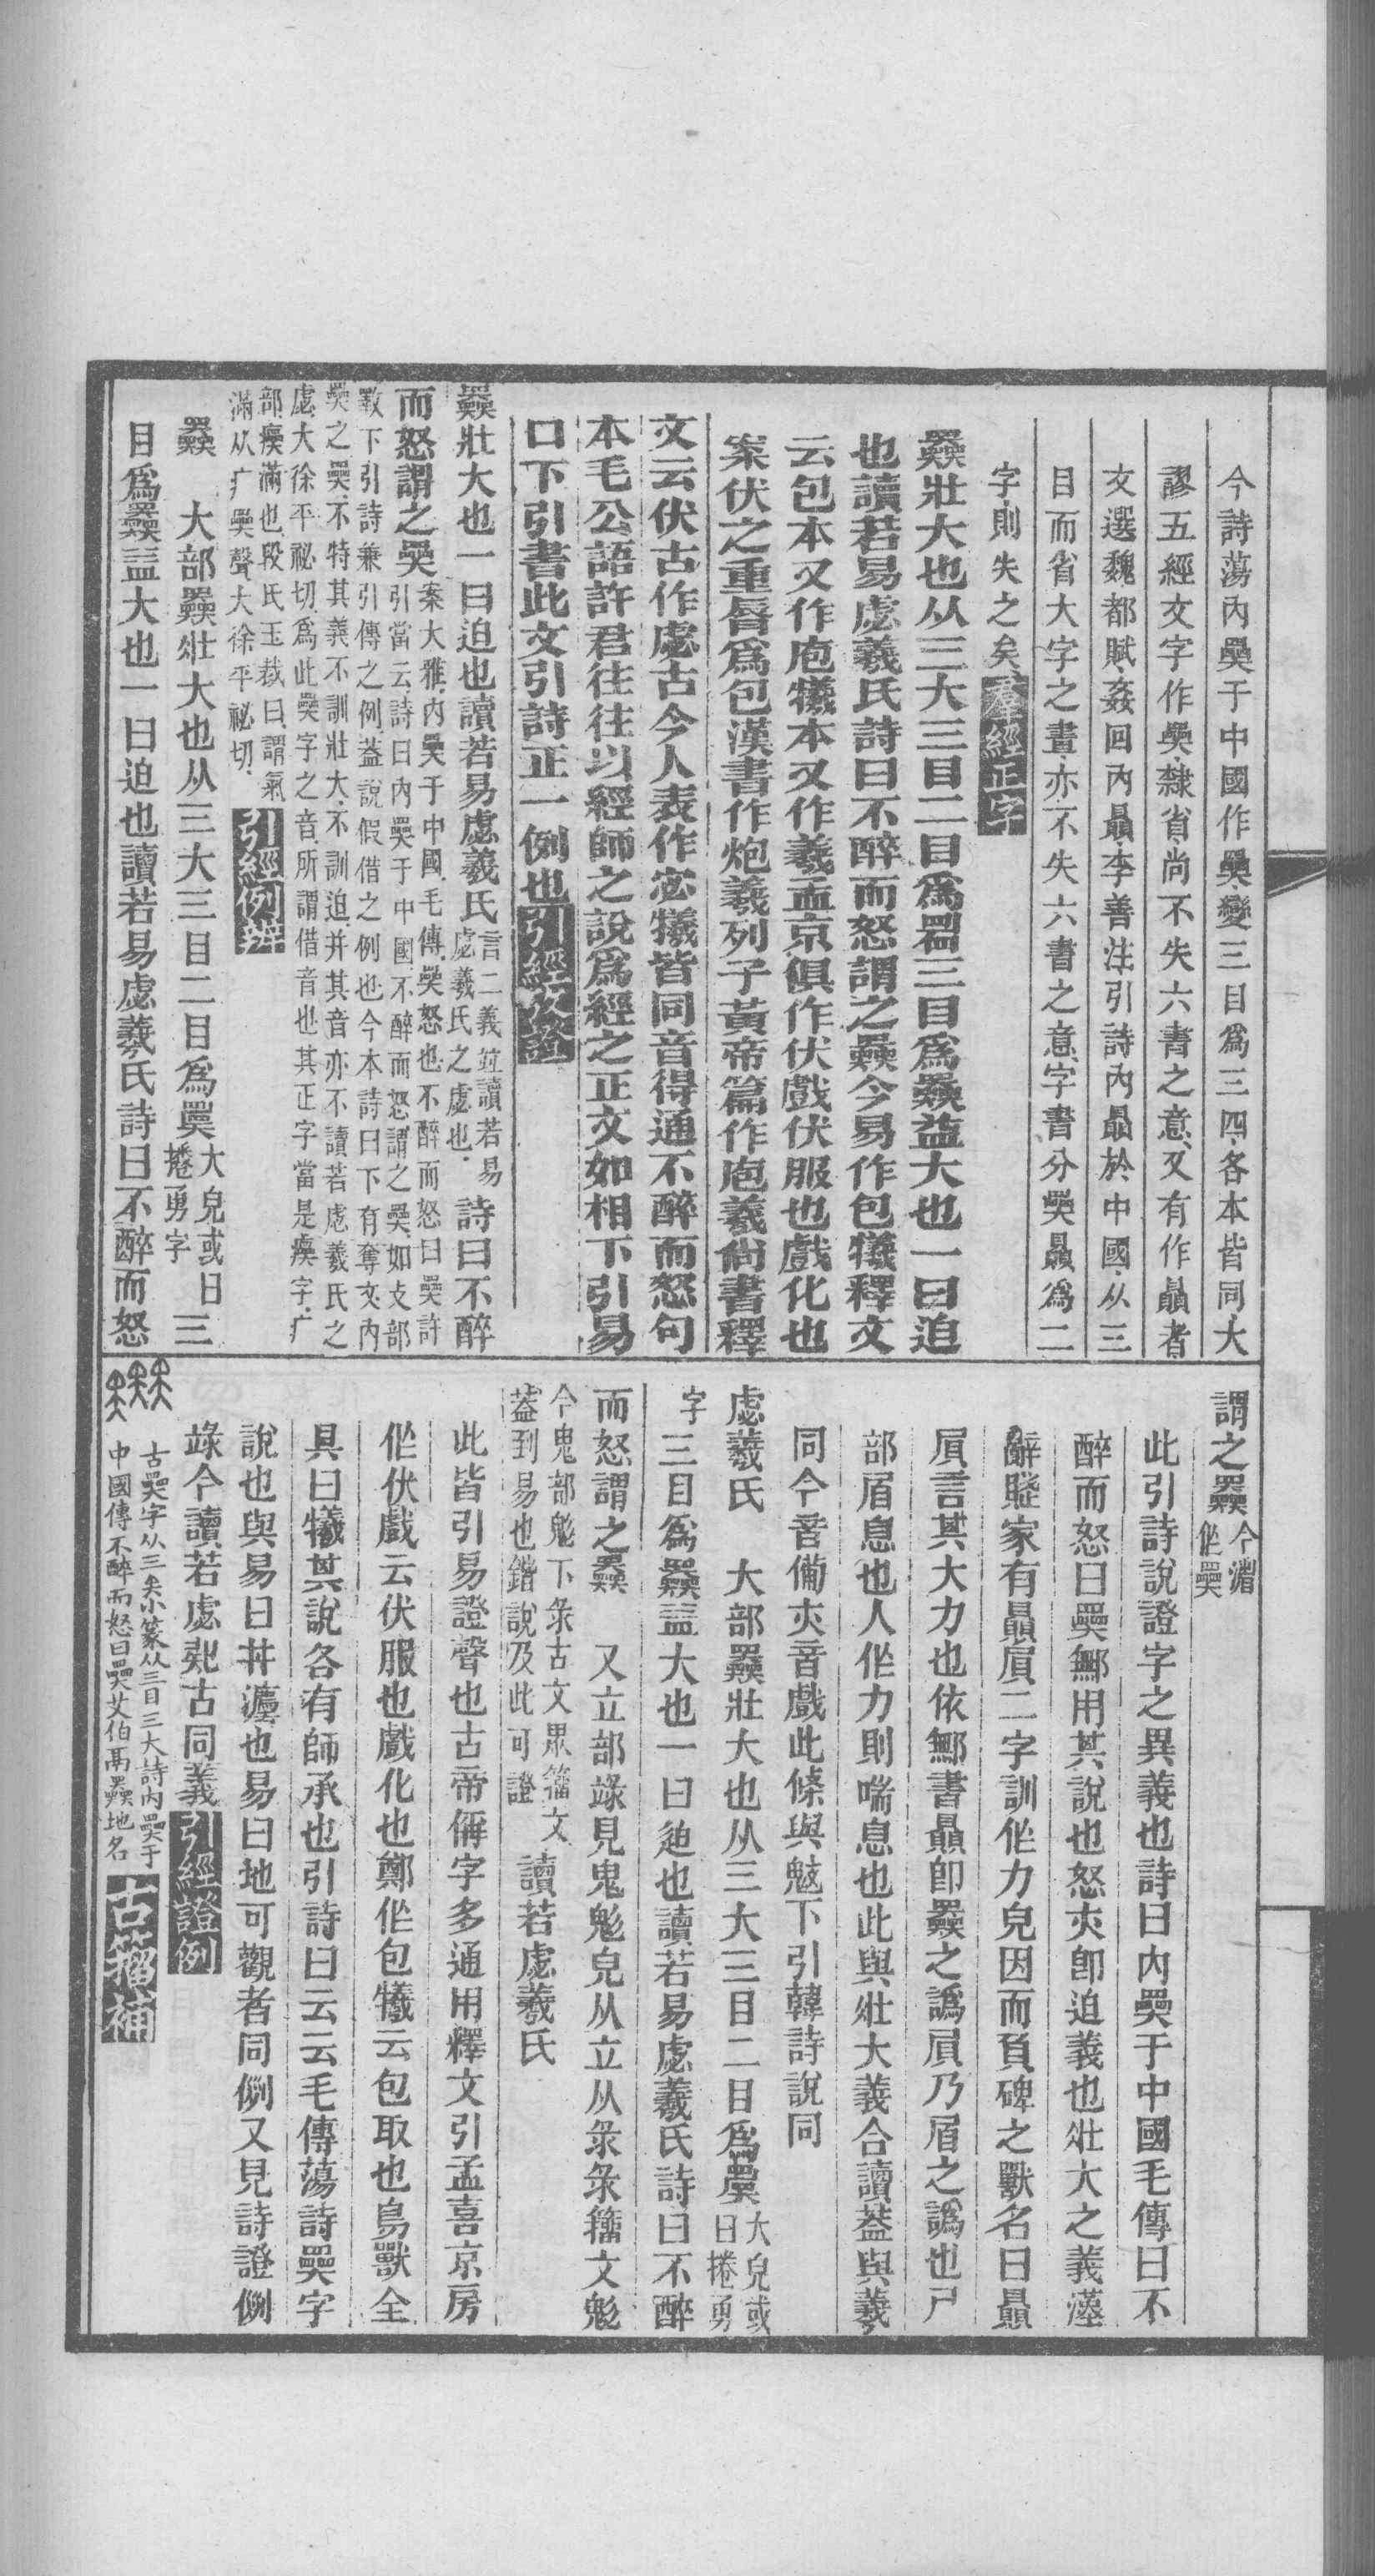 今詩蕩內奰于中國作奰變三目爲三四各本皆同大
謬五經文字作奰隸省尚不失六書之意又有作贔者
文選魏都賦姦回內贔李善注引詩內贔於中國从三
目而省大字之畫亦不失六書之意字書分奰贔爲二
字則失之矣羣經正字
壯大也从三大三目二目爲𥆞三目爲益大也一曰迫
也讀若易虙羲氏詩曰不醉而怒謂之今易作包犧釋文
云包本又作庖犧本又作羲孟京俱作伏戲伏服也戲化也
案伏之重脣爲包漢書作炮羲列子黃帝篇作庖羲尙書釋
文云伏古作虙古今人表作宓犧皆同音得通不醉而怒句
本毛公語許君往往以經師之說爲經之正文如相下引易
口下引書此文引詩正一例也引經文證
壯大也一曰迫也讀若易虙羲氏言二義竝讀若易虙羲氏之虙也詩曰不醉
而怒謂之奰案大雅內奰于中國毛傳奰怒也不醉而怒曰奰許
引當云詩曰內奰于中國不醉而怒謂之奰如攴部
斁下引詩兼引傳之例葢說假借之例也今本詩曰下有奪文內
奰之奰不特其義不訓壯大不訓迫并其音亦不讀若虙羲氏之
虙大徐平祕切爲此奰字之音所謂借音也其正字當是𤺺字疒
部𤺺滿也段氏玉裁曰謂氣
滿从疒奰聲大徐平祕切引經例辨
大部壯大也从三大三目二目爲大皃或曰拳勇字三
目爲益大也一曰迫也讀若易虙羲氏詩曰不醉而怒
謂之今濳作奰
此引詩說證字之異義也詩曰內奰于中國毛傳曰不
醉而怒曰奰鄦用其說也怒亦卽迫義也壯大之義漢
辭賦家有贔屓二字訓作力皃因而負碑之獸名曰贔
屓言其大力也依鄦書贔卽之譌屓乃眉之譌也尸
部眉息也人作力則喘息也此與壯大義合讀葢與羲
同今音備亦音戲此條與魃下引韓詩說同
虙羲氏　大部壯大也从三大三目二目爲大皃或曰捲勇
字三目爲益大也一曰迫也讀若易虙羲氏詩曰不醉
而怒謂之　又立部䇐見鬼鬽皃从立从彔彔籒文鬽
今鬼部鬽下彔古文籒文
葢到易也鍇說及此可證讀若虙羲氏
此皆引易證聲也古帝偁字多通用釋文引孟喜京房
作伏戲云伏服也戲化也鄭作包犧云包取也鳥獸全
具曰犧其說各有師承也引詩曰云云毛傳蕩詩奰字
說也與易曰井灋也易曰地可觀者同例又見詩證例
䇐今讀若虙古同義引經證例
古奰字从三矢小篆从三目三大詩內奰于
中國傳不醉而怒曰奰艾伯鬲地名古籀補